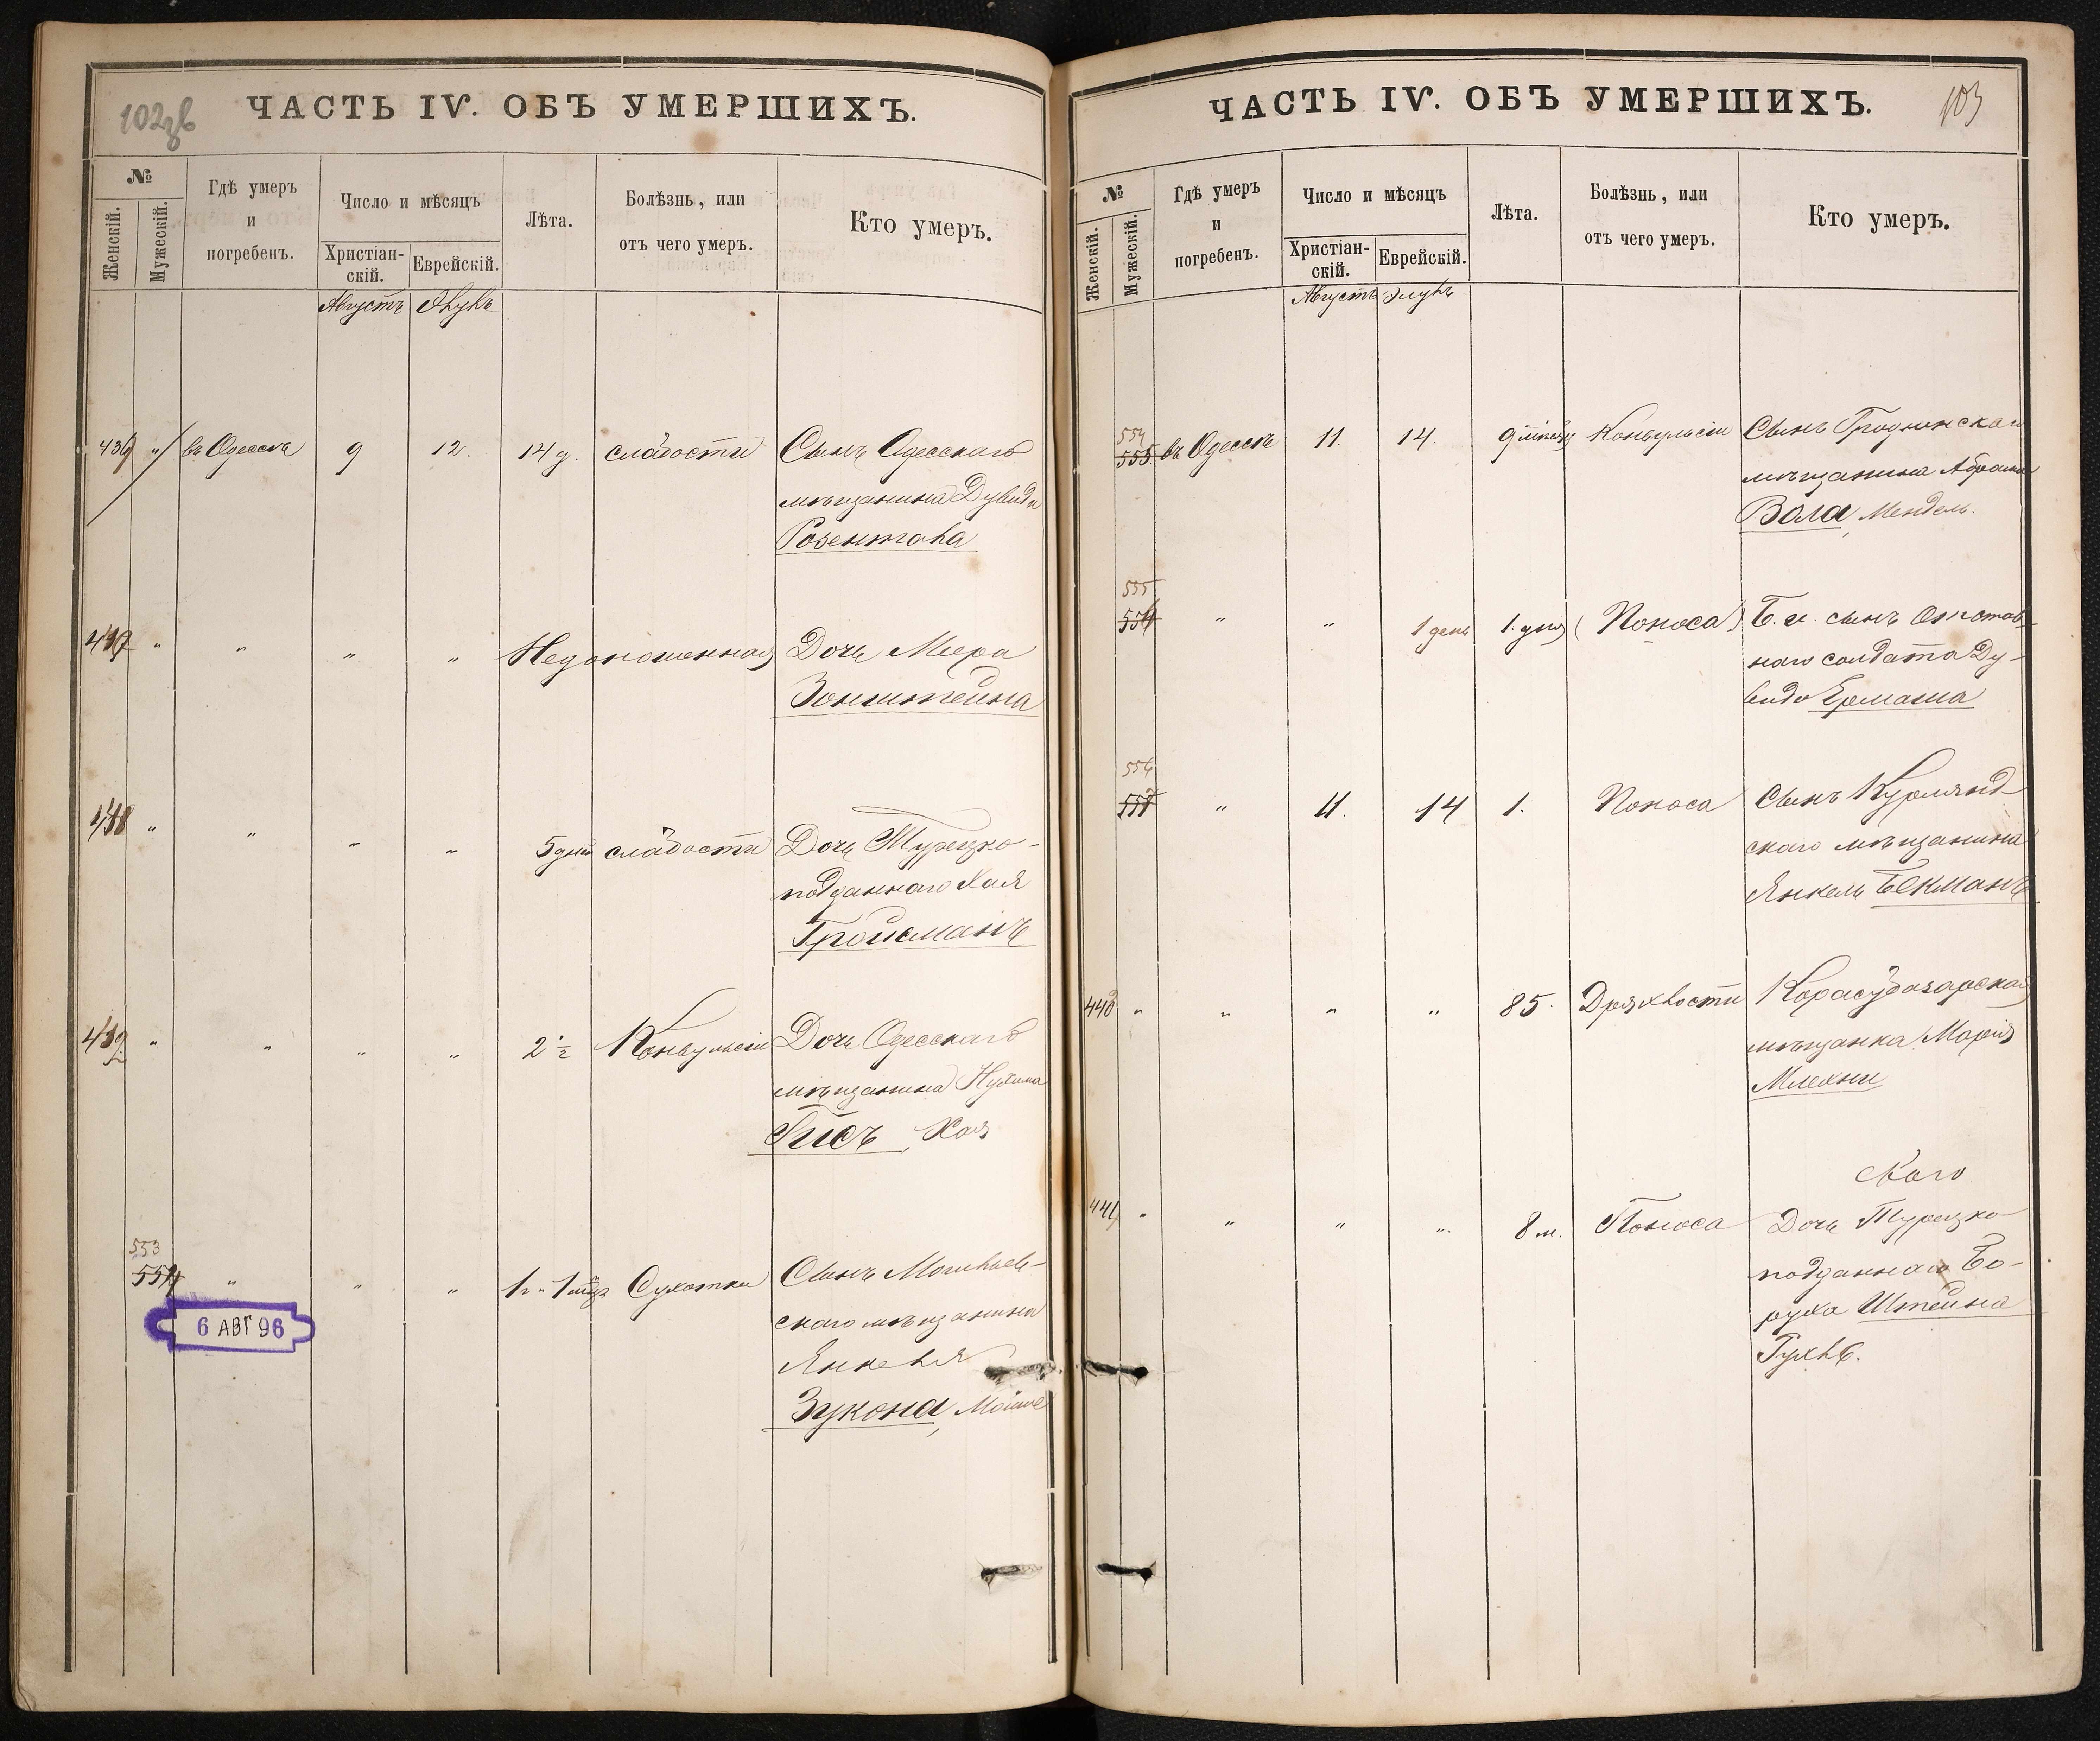 102
ЧАСТЬ IV. ОБЪ УМЕРШИХЪ.
№
Женскій.
Мужескій.
Гдѣ умеръ
и
погребенъ.
Число и мѣсяцъ
Христіан-
скій.
Еврейскій.
Лѣта.
Болѣзнь, или
отъ чего умеръ.
Кто умеръ.
Августъ Элулъ
436 " въ Одессѣ 9 12. 14 д. слабости Сынъ Одесскаго
мѣщанина Дувида
Розенталя
437 " " " " Недоношенная Дочь Меера
Зонштейна
438 " " " " 5 дней слабости Дочь Турецко-
подданнаго Хая
Гройсманъ
439 " " " " 2 1/2 Конвульсіи Дочь Одесскаго
мѣщанина Нухима
Гисъ, Хая
553
554 " " " 1 г. 1 мѣс Сухотки Сынъ Могилев-
скаго мѣщанина
Янкеля
Зукона, Мойше
6 АВГ 96
ЧАСТЬ IV. ОБЪ УМЕРШИХЪ.
103
№
Женскій.
Мужескій.
Гдѣ умеръ
и
погребенъ.
Число и мѣсяцъ
Христіан-
скій.
Еврейскій.
Лѣта.
Болѣзнь, или
отъ чего умеръ.
Кто умеръ.
Августъ Элулъ
554
555. въ Одессѣ 11. 14. 9 мѣсяц Конвульсіи Сынъ Гродненскаго
мѣщанина Абрама
Вола, Мендель.
555
556 " " 1 день 1. дня (Поноса) Б. и. сынъ Отстав-
наго солдата Ду-
вида Ермаша
556
557 " 11. 14 1. Поноса Сынъ Курлянд-
скаго мѣщанина
Янкель Бекманъ
440 " " " " 85. Дряхлости Карасубазарская
мѣщанка Марія
441 " " " " 8 м. Поноса Дочь Турецко
скаго
подданнаго Бо-
руха Штейна
Рухль.